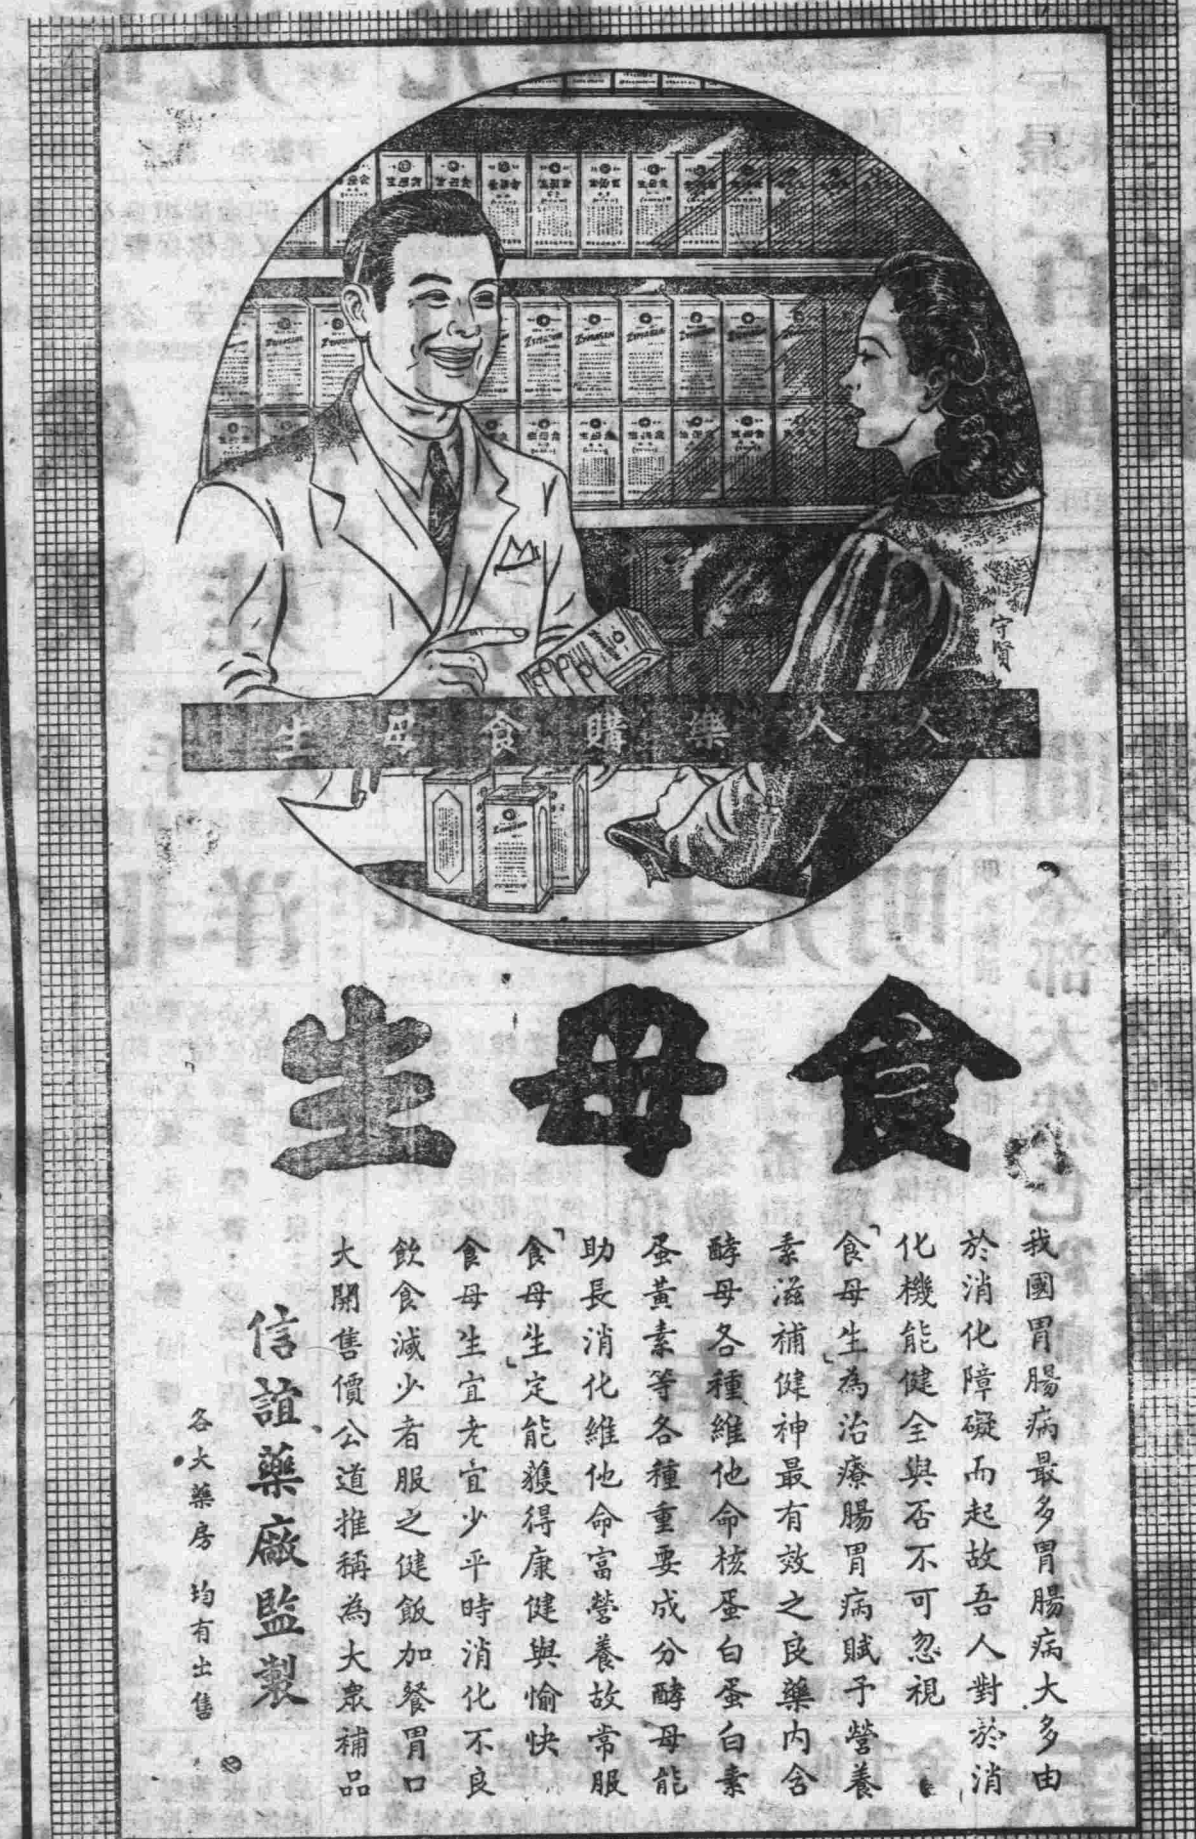 守賢
人人樂購食母生
食母生
我國胃腸病最多胃腸病大多由
於消化障礙而起故吾人對於消
化機能健全與否不可忽視
「食母生」為治療腸胃病賦予營養
素滋補健神最有效之良藥內含
酵母各種維他命核蛋白蛋白素
蛋黃素等各種重要成分酵母能
助長消化維他命富營養故常服
「食母生」定能獲得康健與愉快
食母生宜老宜少平時消化不良
飲食減少者服之健飯加餐胃口
大開售價公道推稱為大眾補品
信誼藥廠監製
各大藥房 均有出售